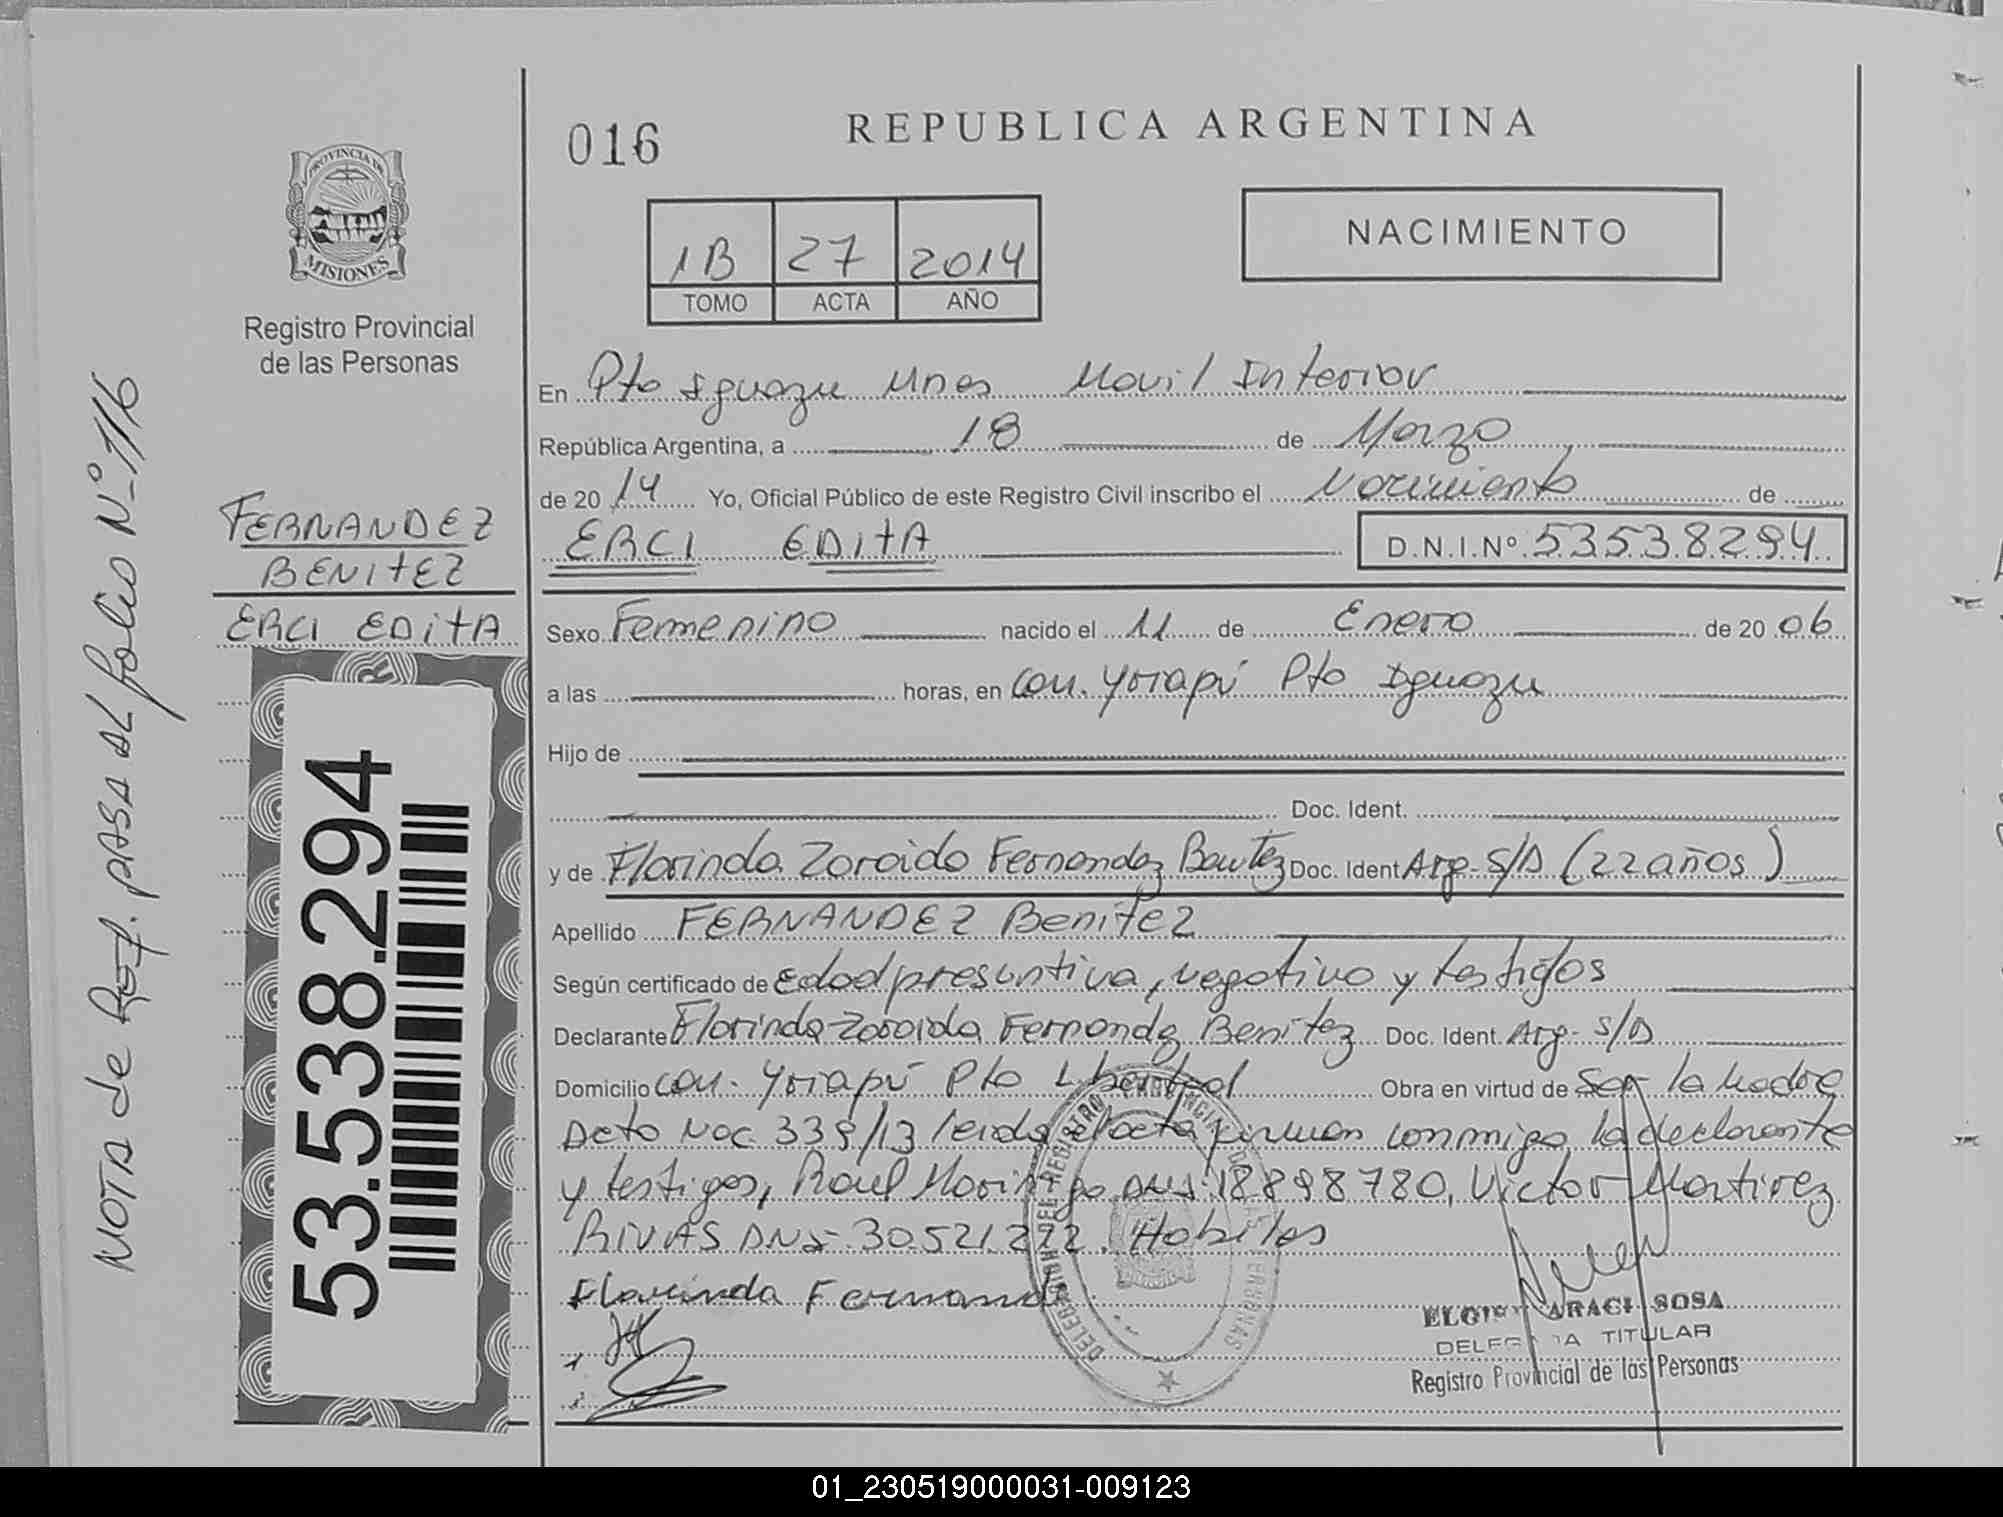 016
REPUBLICA ARGENTINA
PROVINCIA DE
MISIONES
Registro Provincial
de las Personas
1B 27 2014
TOMO ACTA AÑO
NACIMIENTO
En Pto Iguazu Mnes Movil Interior
República Argentina, a 18 de Marzo
de 20 14 Yo, Oficial Público de este Registro Civil inscribo el Nacimiento de
ERCI EDITA D.N.I.Nº 53538294
FERNANDEZ
BENITEZ
ERCI EDITA
53.538.294
NOTA de Ref. PASA AL folio Nº 116
Sexo Femenino nacido el 11 de Enero de 20 06
a las horas, en Com. Yriapú Pto Iguazu
Hijo de
Doc. Ident.
y de Florinda Zoraida Fernandez Benitez Doc. Ident Arg- S/D (22 años)
Apellido FERNANDEZ Benitez
Según certificado de Edad presuntiva, negativo y testigos
Declarante Florinda Zoraida Fernandez Benitez Doc. Ident. Arg- S/D
Domicilio Com. Yriapú Pto Libertad Obra en virtud de Ser la Madre
Dcto Nac. 339/13 leida el acta firman conmigo la declarante
y testigos, Raul DNI 18898780, Victor Martinez
RIVAS DNI 30.521.272. Habiles
Florinda Fernand
ARACI SOSA
TITULAR
Registro Provincial de las Personas
01_230519000031-009123